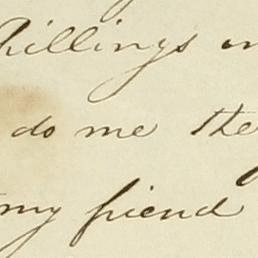 hillings
do me the
my friend